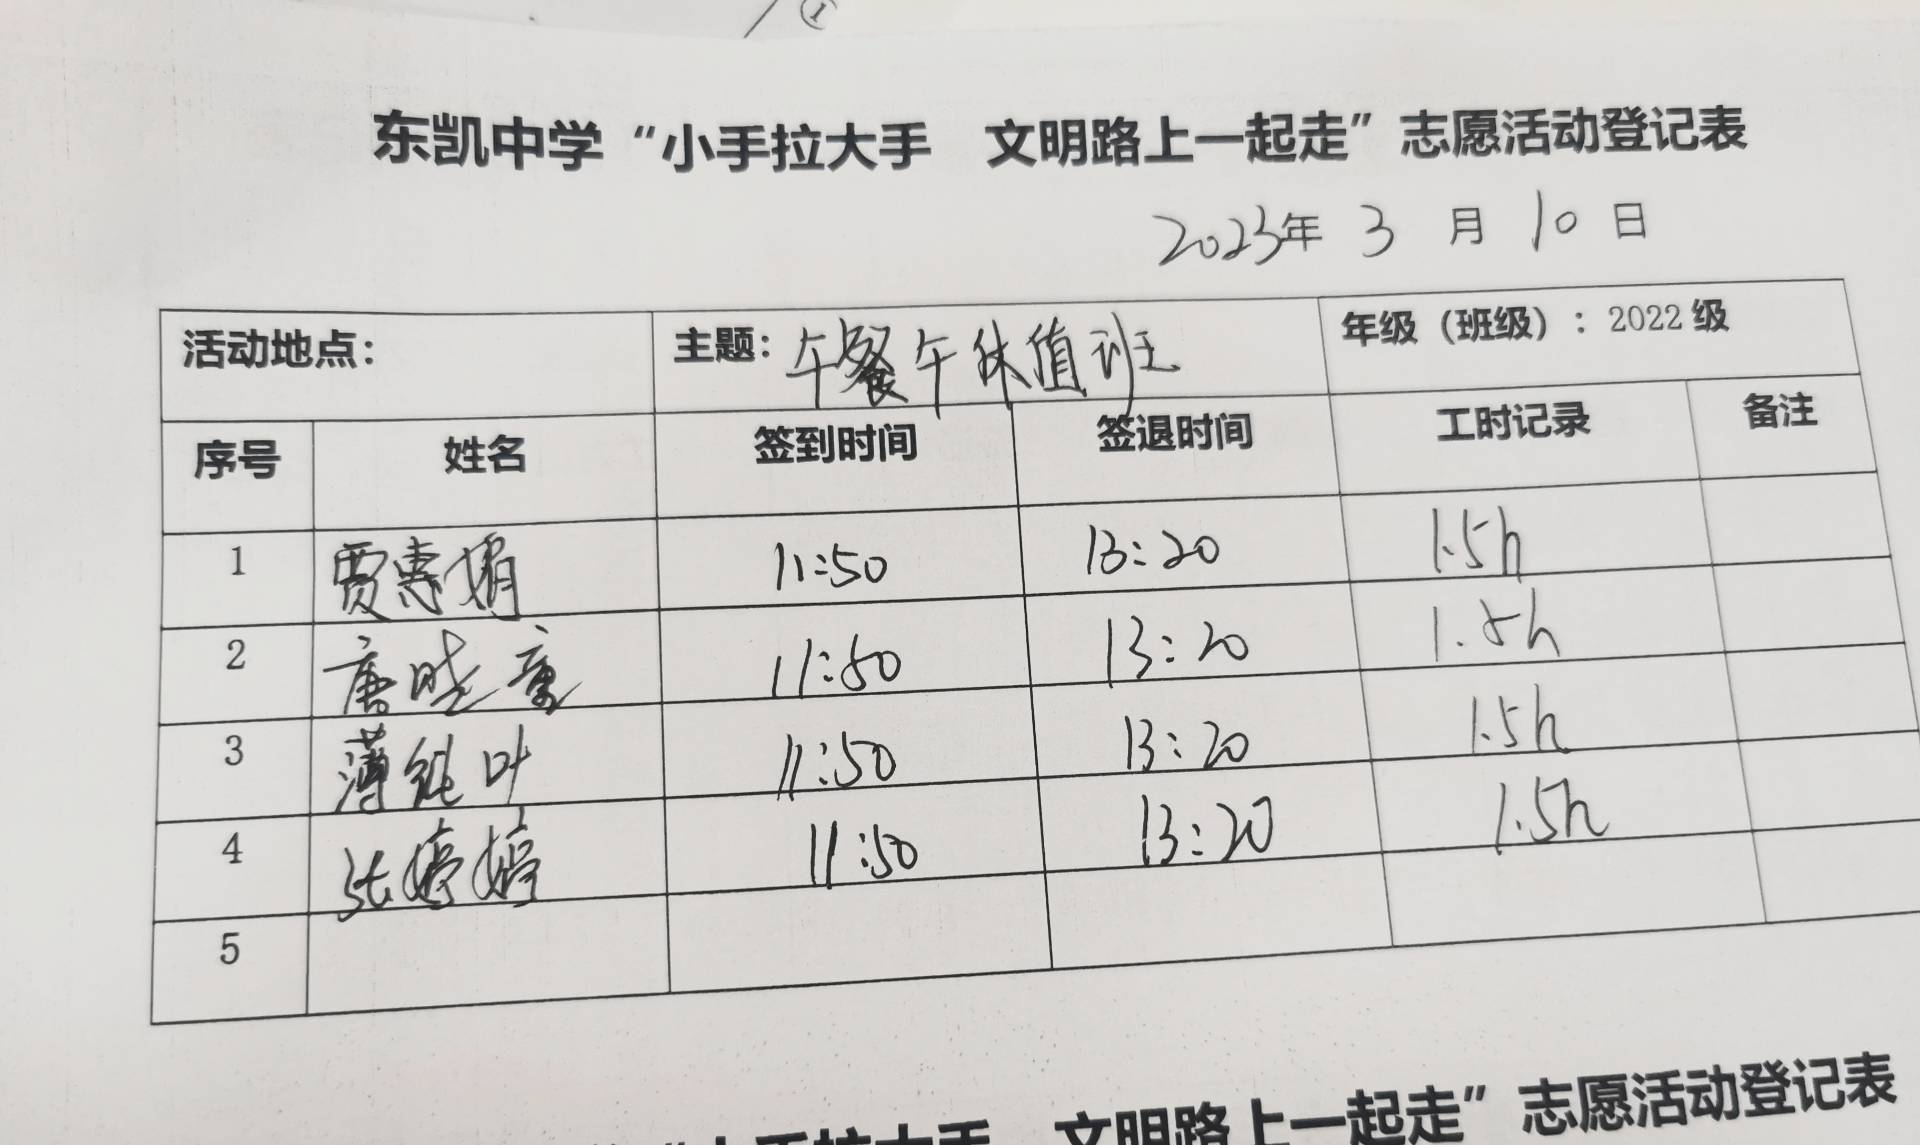 ①
东凯中学“小手拉大手 文明路上一起走”志愿活动登记表
2023年 3 月 10 日
活动地点: 主题: 午餐午休值班 年级（班级）: 2022 级
序号 姓名 签到时间 签退时间 工时记录 备注
1 贾惠娟 11:50 13:20 1.5h
2 唐晓童 11:50 13:20 1.5h
3 薄纯叶 11:50 13:20 1.5h
4 张婷婷 11:50 13:20 1.5h
5
“小手拉大手 文明路上一起走”志愿活动登记表